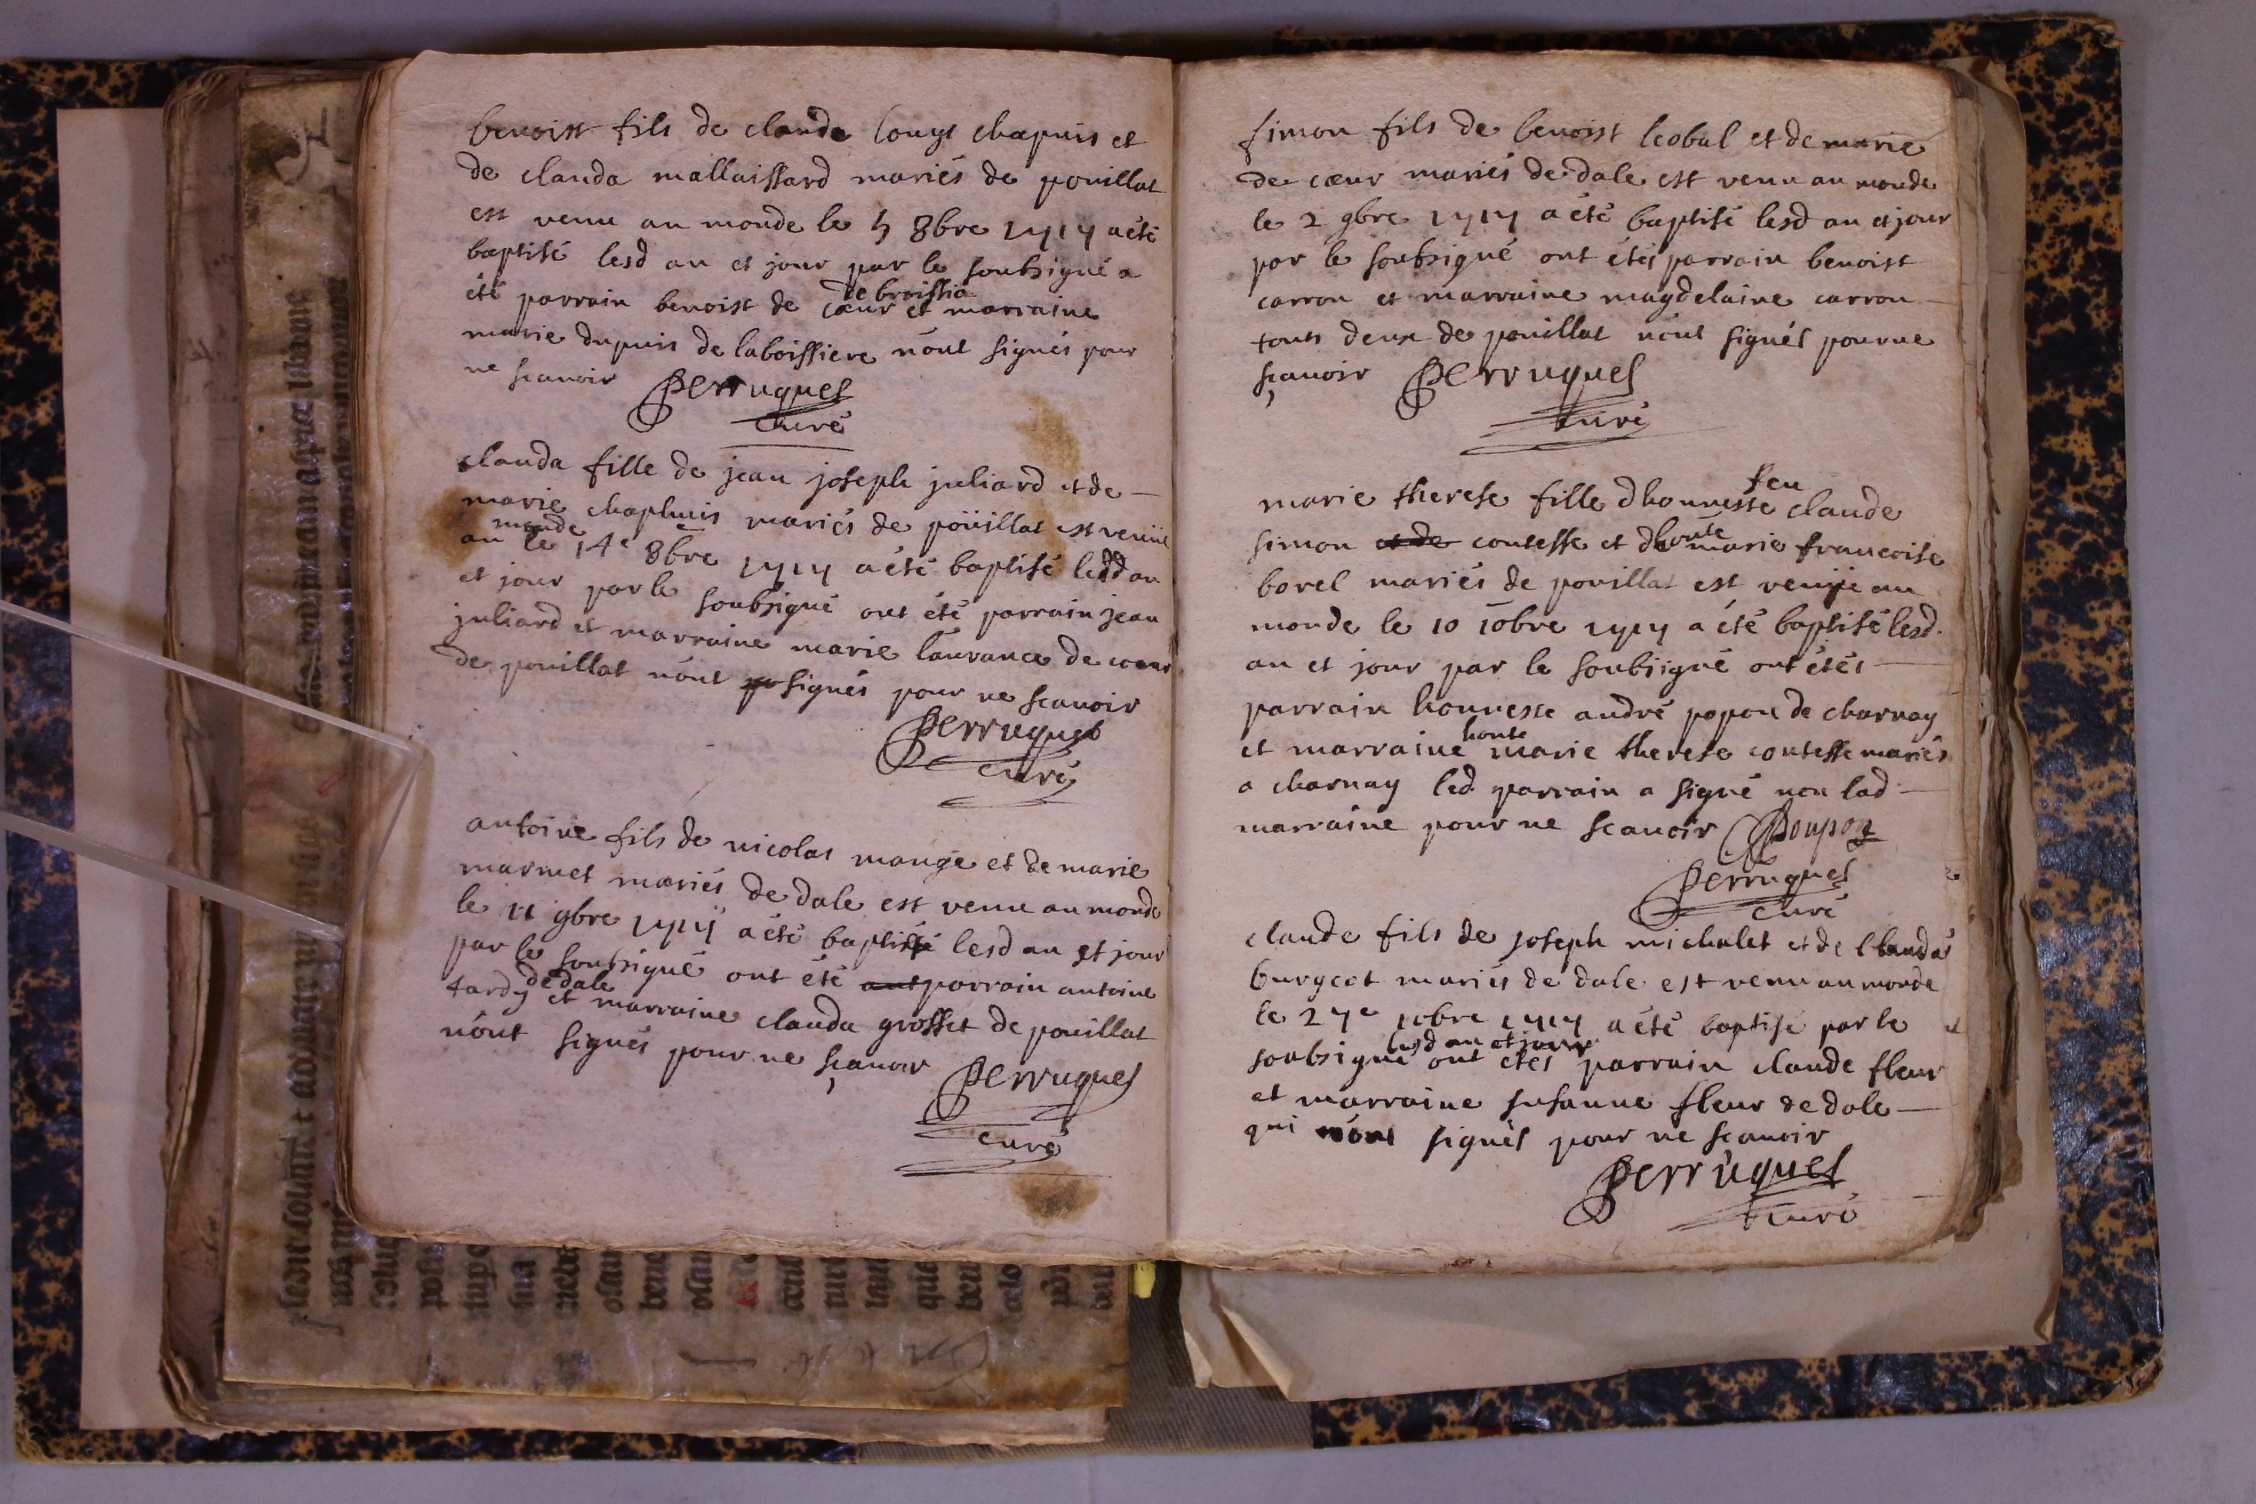 benoist fils de claude louys chapuis et
de clauda mallaissard mariés de pouillat
est venu au monde le 5 8bre 1717 a été
baptisé lesd an et jour par le soubsigné a
été parrain benoist de cœur de broissia et marraine
marie dupuis de laboissiere n'ont signés pour
ne scavoir Perruquet
curé
clauda fille de jean joseph juliard et de
marie chaphuis mariés de poüillat est venüe
au monde le 14e 8bre 1717 a été baptisé lesd an
et jour par le soubsigné ont été parrain jean
juliard et marraine marie laurance de cœur
de pouillat n'ont signés pour ne scavoir
Perruquet
curé
antoine fils de nicolas mange et de marie
marmet mariés de dale est venu au monde
le 11 9bre 1717 a été baptisé lesd an et jour
par le soubsigné ont été parrain antoine
tardy de dale et marraine clauda grosset de pouillat
n'ont signés pour ne sçavoir Perruquet
curé
simon fils de benoist leobal et de marie
de cœur mariés de dale est venu au monde
le 2 9bre 1717 a été baptisé lesd an et jour
par le soubsigné ont étés parrain benoist
carron et marraine magdelaine carron
touts deux de pouillat n'ont signés pour ne
sçavoir Perruquet
curé
marie therese fille d'honneste feu claude
simon et de contesse et d'honte marie francoise
borel mariés de pouillat est venüe au
monde le 10 10bre 1717 a été baptisé lesd.
an et jour par le soubsigné ont étés
parrain honneste andré popon de charnay
et marraine honte marie therese contesse mariés
a charnay led parrain a signé non lad
marraine pour ne scavoir Poupon
Perruquet
curé
claude fils de joseph michalet et de clauda
burgeot mariés de dale est venu au monde
le 27e 10bre 1717 a été baptisé par le
soubsigné lesd an et jour ont étés parrain claude fleur
et marraine susanne fleur de dale
qui n'ont signés pour ne scavoir
Perruquet
curé